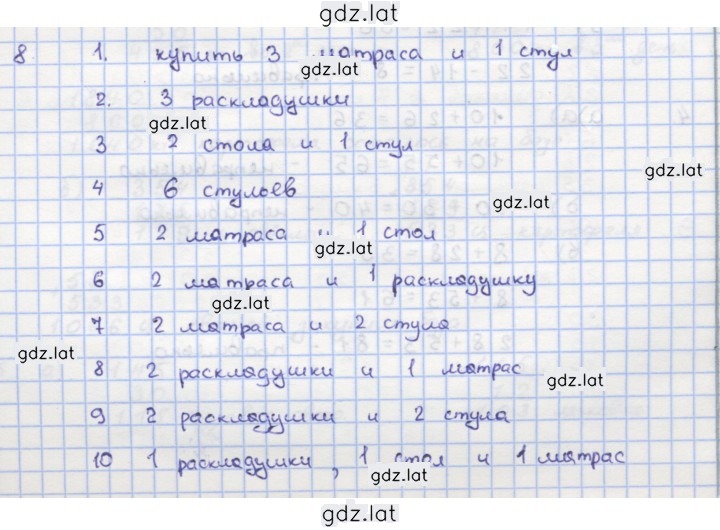 gdz.lat
8 1. купить 3 матраса и 1 стул
gdz.lat
2. 3 раскладушки
gdz.lat
3 2 стола и 1 стул
gdz.lat
4 6 стульев
gdz.lat
5 2 матраса и 1 стол
gdz.lat
6 2 матраса и 1 раскладушку
gdz.lat
7 2 матраса и 2 стула
gdz.lat
8 2 раскладушки и 1 матрас
gdz.lat
9 2 раскладушки и 2 стула
10 1 раскладушки, 1 стол и 1 матрас
gdz.lat
gdz.lat